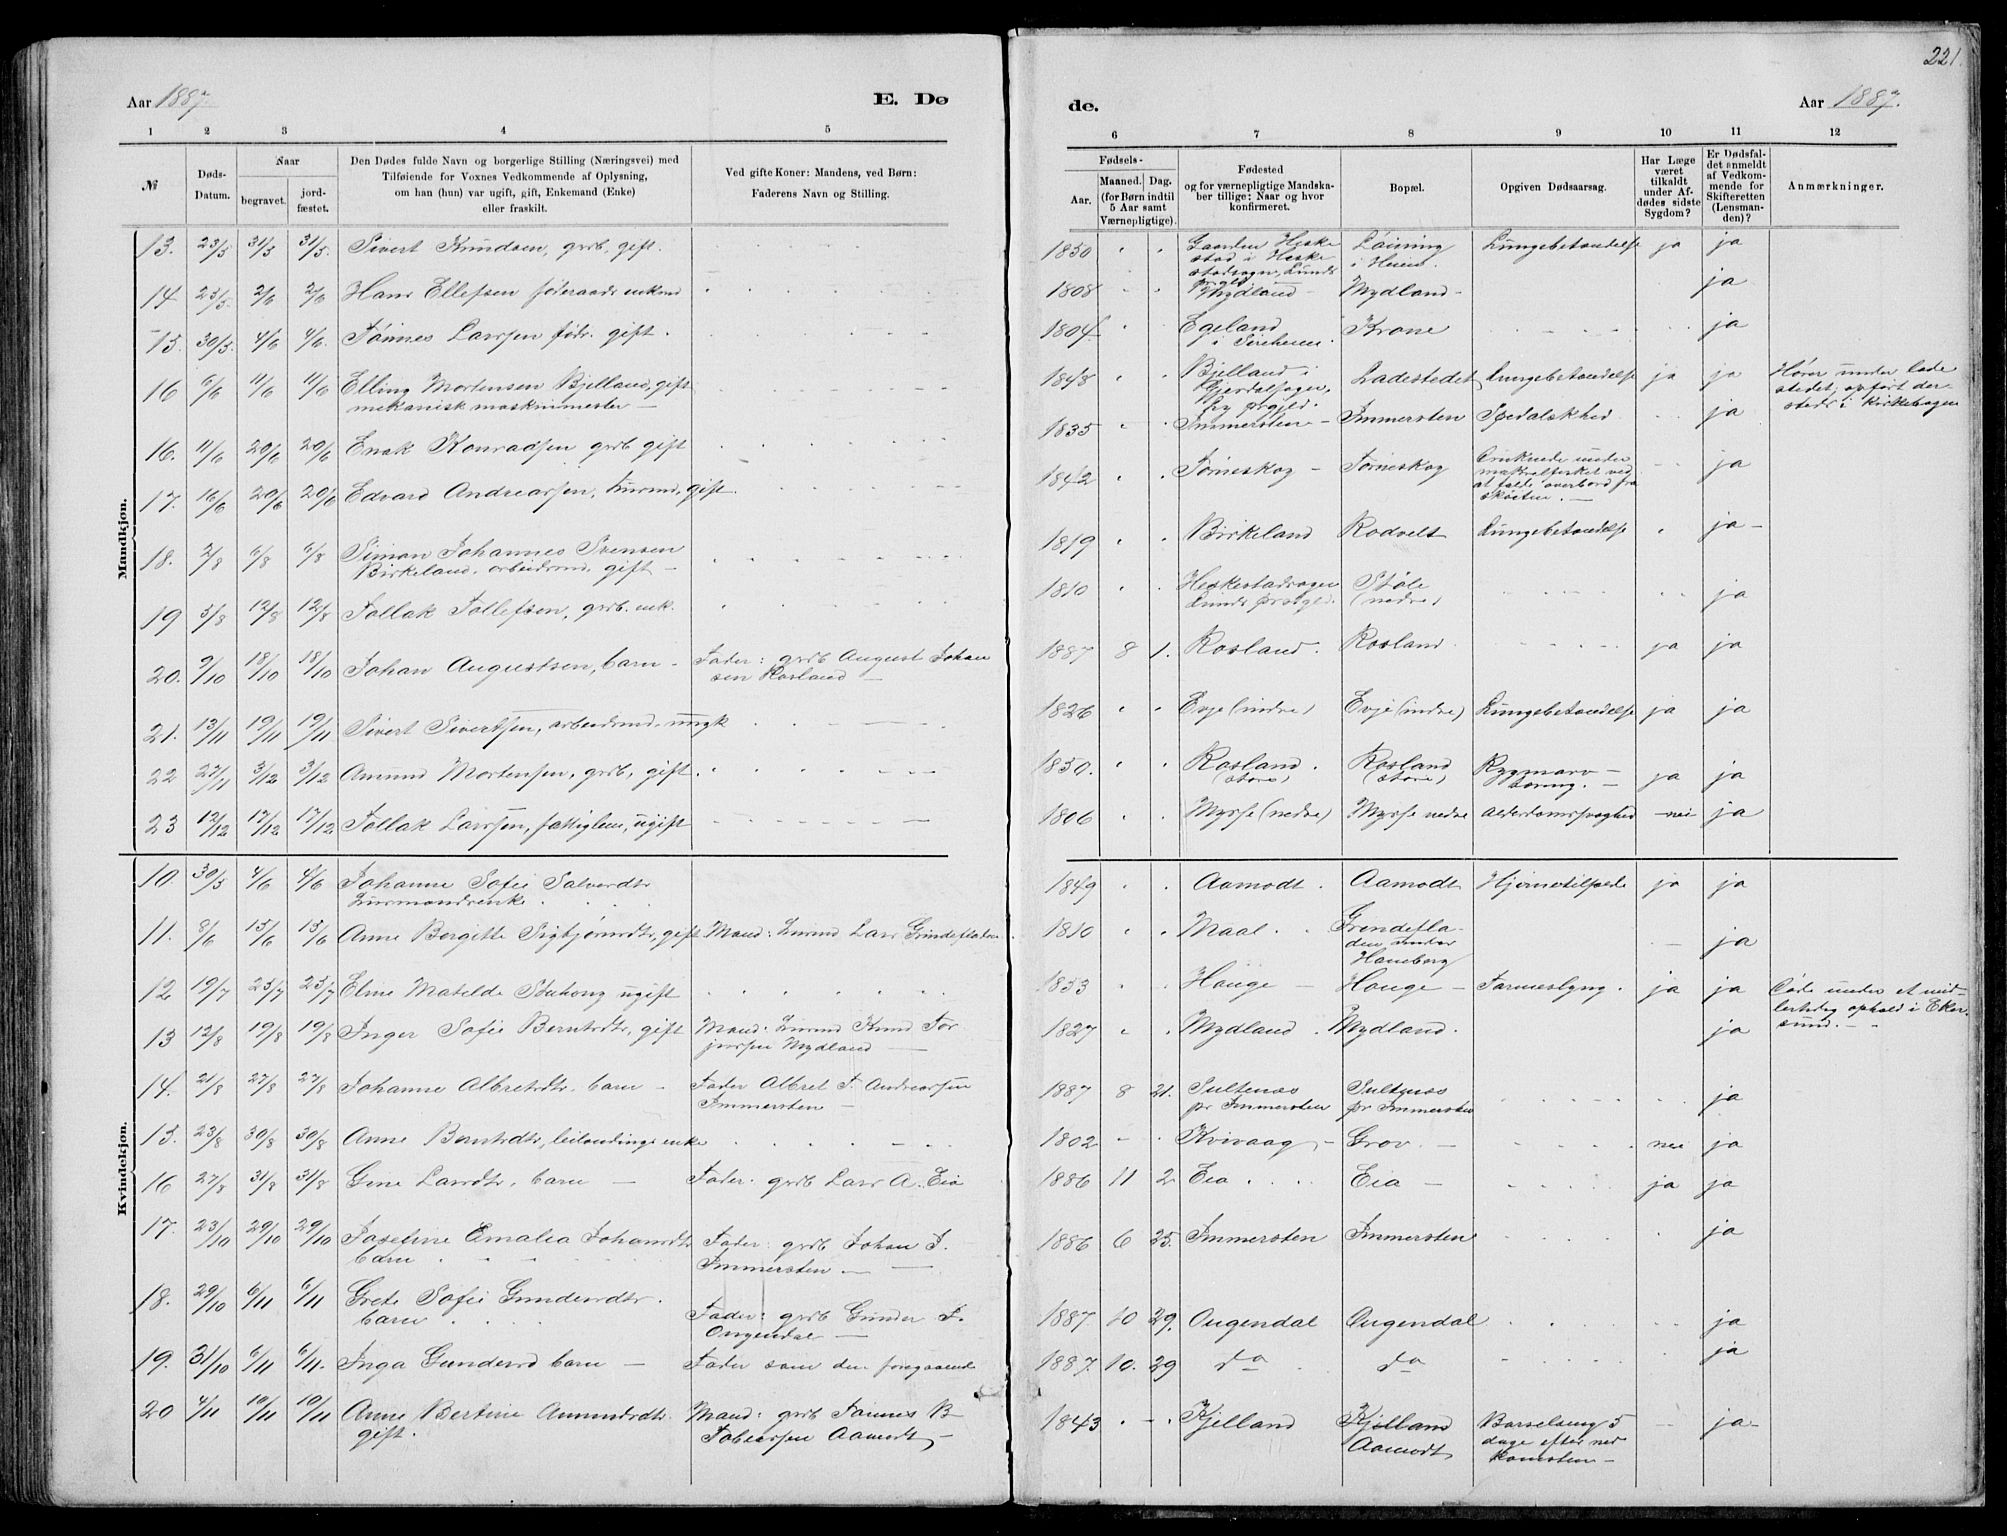 221.
Aar 1887. E. Dø
de. Aar 1887.
1 2 3 4 5
6 7 8 9 10 11 12
№ Døds-Datum. Naar begravet. jordfæstet. Den Dødes fulde Navn og borgerlige Stilling (Næringsvei) med Tilføiende for Voxnes Vedkommende af Oplysning, om han (hun) var ugift, gift, Enkemand (Enke) eller fraskilt. Ved gifte Koner: Mandens, ved Børn: Faderens Navn og Stilling.
Fødsels- Aar. Maaned. Dag. (for Børn indtil 5 Aar samt Værnepligtige). Fødested og for værnepligtige Mandskaber tillige: Naar og hvor konfirmeret. Bopæl. Opgiven Dødsaarsag. Har Læge været tilkaldt under Afdødes sidste Sygdom? Er Dødsfaldet anmeldt af Vedkommende for Skifteretten (Lensmanden)? Anmærkninger.
Mandkjøn.
13. 23/5 31/5 31/5. Sivert Knudsen, grdb, gift. 1850 Gaarden Heskestad i Heskestadsogn, Lunds prgld Løining i Heien. Lungebetændelse ja ja
14 25/5 2/6 2/6 Hans Ellefsen føderaads enkmd 1808 Mydland Mydland ja
15. 30/5. 4/6 4/6. Tønnes Larssen fødr. gift. 1804 Egeland i Sireheien. Krone ja
16 6/6 11/6 11/6 Elling Mortensen Bjelland, gift mekanisk maskinmester 1848 Bjelland i Gjerdalsogn, Ly prgjld. Ladestedet Lungebetændelse ja ja Hører under ladestedet, opført dersteds i kirkebogen
16. 11/6 20/6 20/6 Enok Konradsen grdb gift 1835 Immersten Immersten Spedalskhed ja
17. 16/6 20/6 20/6 Edvard Andreassen, husmd, gift. 1842 Tørneskog Tørneskog Druknede under makrelfisket ved at falde overbord fra skøiten. ja
18. 2/8 6/8 6/8 Simon Johannes Svensen Birkeland, arbeidsmd, gift 1819 Birkeland Rodvelt Lungebetændelse ja
19 3/8 12/8 12/8 Tollak Tollefsen, grdb. enk. 1810 Heskestadsogn Lunds prstgld. Støle (nedre) ja
20. 9/10 18/10 18/10 Johan Augustsen, barn Fader: grdb August Johansen Rosland 1887 8 1. Rosland. Rosland. ja ja
21. 13/11 19/11 19/11 Sivert Sivertsen, arbeidsmd. ungk 1826 Evje (indre) Evje (indre) Lungebetændelse ja ja
22 27/11 3/12 3/12 Amund Mortensen, grdb, gift. 1850. Rosland (store) Rosland (store) Rygmarvtæring. ja ja
23 12/12 17/12 17/12 Tollak Larssen, fattiglem, ugift 1806 Mysse (nedre) Mysse nedre alderdomssvaghed nei ja
Kvindekjøn.
10. 30/5 4/6 4/6 Johanne Sofie Salvesdtr Husmandsenke 1849 Aamodt Aamodt Hjernetilfælde ja ja
11. 8/6 15/6 15/6 Anne Bergitte Sigbjørnsdtr, gift Mand: husmd Lars Grindefladen 1810 Maal. Grindefladen under Haneberg ja
12 19/7 25/7 25/7 Eline Matilde Stuhoug ugift 1853 Hauge Hauge Tarmeslyng. ja ja Døde under et midlertidig ophold i Ekersund.
13 12/8 19/8 19/8 Inger Sofie Berntsdtr, gift Mand: husmd Knud Torjussen Mydland 1827 Mydland. Mydland. ja
14. 21/8 27/8 27/8 Johanne Albretsdtr. barn Fader Albret T. Andreassen Immersten 1887 8 21. Sultenæs pr Immersten Sultenæs pr Immersten ja
15. 23/8 30/8 30/8 Anne Berntsdtr, leilændings enke 1802 Kvivaag Grov nei ja
16 27/8 31/8 31/8 Gine Larsdtr, barn Fader: grdb Lars A. Eia 1886 11 2 Eia Eia ja ja
17. 23/10 29/10 29/10 Josefine Emalia Johansdtr barn Fader: grdb Johan J. Immersten 1886 6 25. Immersten Immersten ja
18. 29/10 6/11 6/11 Grete Sofie Gundersdtr. barn Fader: grdb Gunder J. Ougendal 1887 10 29. Ougendal Ougendal ja
19. 31/10 6/11 6/11. Inga Gundersd barn Fader som den foregaaende 1887. 10. 29 do do ja
20 4/11 10/11 10/11 Anne Bertine Amundsdtr. gift. Mand: grdb Tønnes B Tobiassen Aamodt 1843 Kjelland Kjelland Aamodt, Barselseng 5 dage efter nedkomsten ja